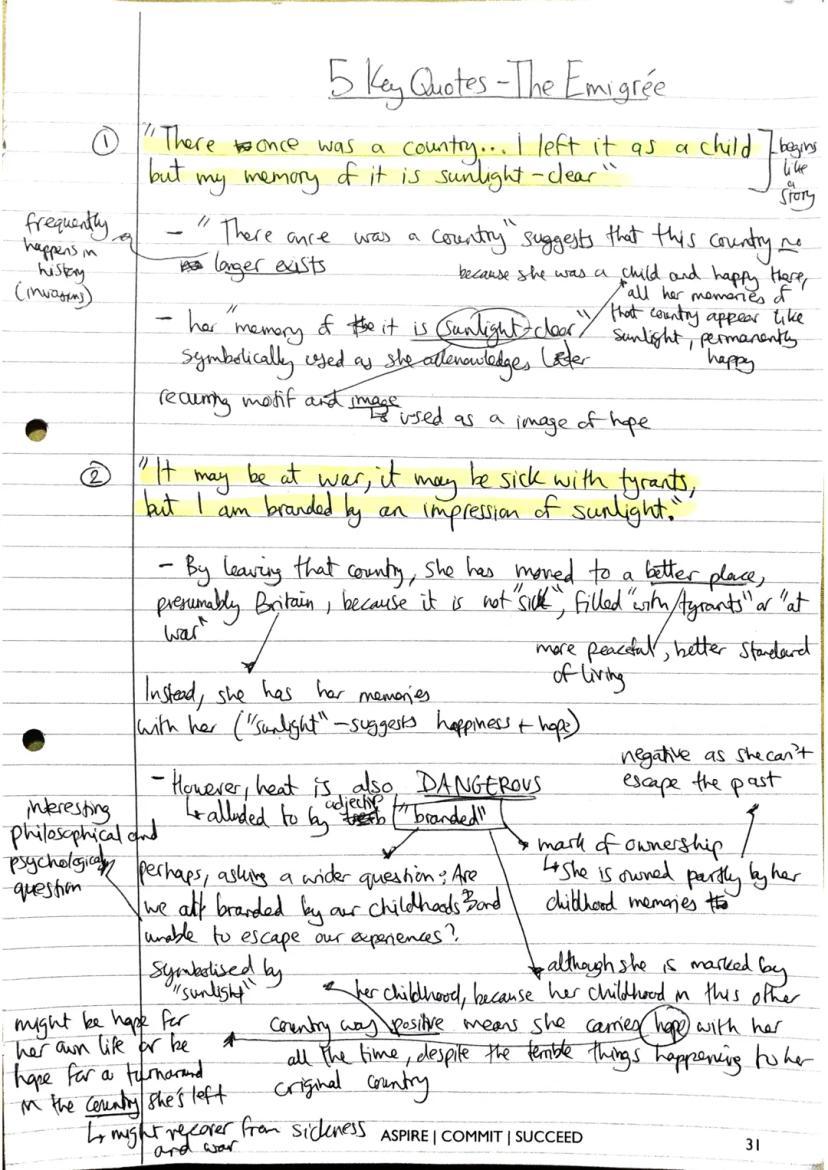 5 Key Quotes - The Emigrée
① "There once was a country... I left it as a child
but my memory of it is sunlight-clear"
begins
like
a
story
frequently
happens in
history
(invasions)
- "There once was a country" suggests that this country no
longer exists
because she was a child and happy there,
all her memories of
that country appear like
sunlight, permanently
happy
- her "memory of it is sunlight-clear"
symbolically used as she acknowledges later
recurring motif and image
used as a image of hope
② "It may be at war, it may be sick with tyrants,
but I am branded by an impression of sunlight."
- By leaving that country, she has moved to a better place,
presumably Britain, because it is not "sick", filled "with tyrants" or "at
war"
more peaceful, better standard
of living
Instead, she has her memories
with her ("sunlight" - suggests happiness + hope)
negative as she can't
escape the past
- However, heat is also DANGEROUS
alluded to by adjective "branded"
interesting
philosophical and
psychological
question
mark of ownership
she is owned partly by her
childhood memories
perhaps, asking a wider question: Are
we all branded by our childhoods and
unable to escape our experiences?
Symbolised by
"sunlight"
although she is marked by
her childhood, because her childhood in this other
country was positive means she carries hope with her
all the time, despite the terrible things happening to her
original country
might be hope for
her own life or be
hope for a turnaround
in the country she's left
might recover from sickness
and war
ASPIRE | COMMIT | SUCCEED
31